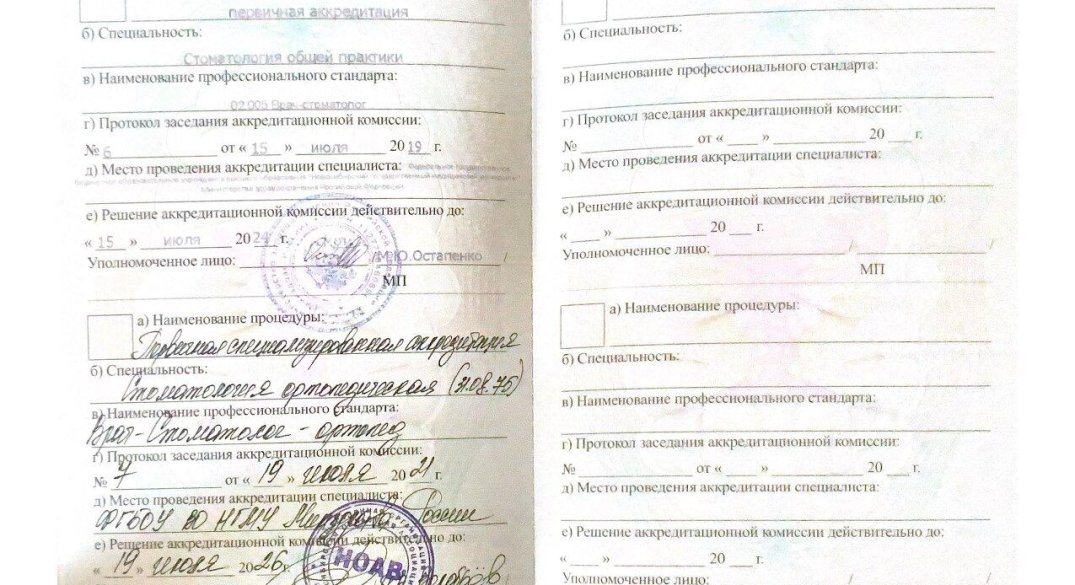 первичная аккредитация
б) Специальность:
Стоматология общей практики
в) Наименование профессионального стандарта:
02.005 Врач-стоматолог
г) Протокол заседания аккредитационной комиссии:
№ 6 от « 15 » июля 2019 г.
д) Место проведения аккредитации специалиста: Федеральное государственное
Министерства здравоохранения Российской Федерации
е) Решение аккредитационной комиссии действительно до:
« 15 » июля 2024 г.
Уполномоченное лицо: /М.Ю.Остапенко /
МП
а) Наименование процедуры:
Первичная специализированная аккредитация
б) Специальность:
Стоматология ортопедическая (31.08.75)
в) Наименование профессионального стандарта:
Врач-Стоматолог-ортопед
г) Протокол заседания аккредитационной комиссии:
№ 7 от « 19 » июля 2021 г.
д) Место проведения аккредитации специалиста:
ФГБОУ ВО НГМУ Минздрава России
е) Решение аккредитационной комиссии действительно до:
« 19 » июля 2026 г.
НОАВ
б) Специальность:
в) Наименование профессионального стандарта:
г) Протокол заседания аккредитационной комиссии:
№ от « » 20 г.
д) Место проведения аккредитации специалиста:
е) Решение аккредитационной комиссии действительно до:
« » 20 г.
Уполномоченное лицо: / /
МП
а) Наименование процедуры:
б) Специальность:
в) Наименование профессионального стандарта:
г) Протокол заседания аккредитационной комиссии:
№ от « » 20 г.
д) Место проведения аккредитации специалиста:
е) Решение аккредитационной комиссии действительно до:
« » 20 г.
Уполномоченное лицо: / /